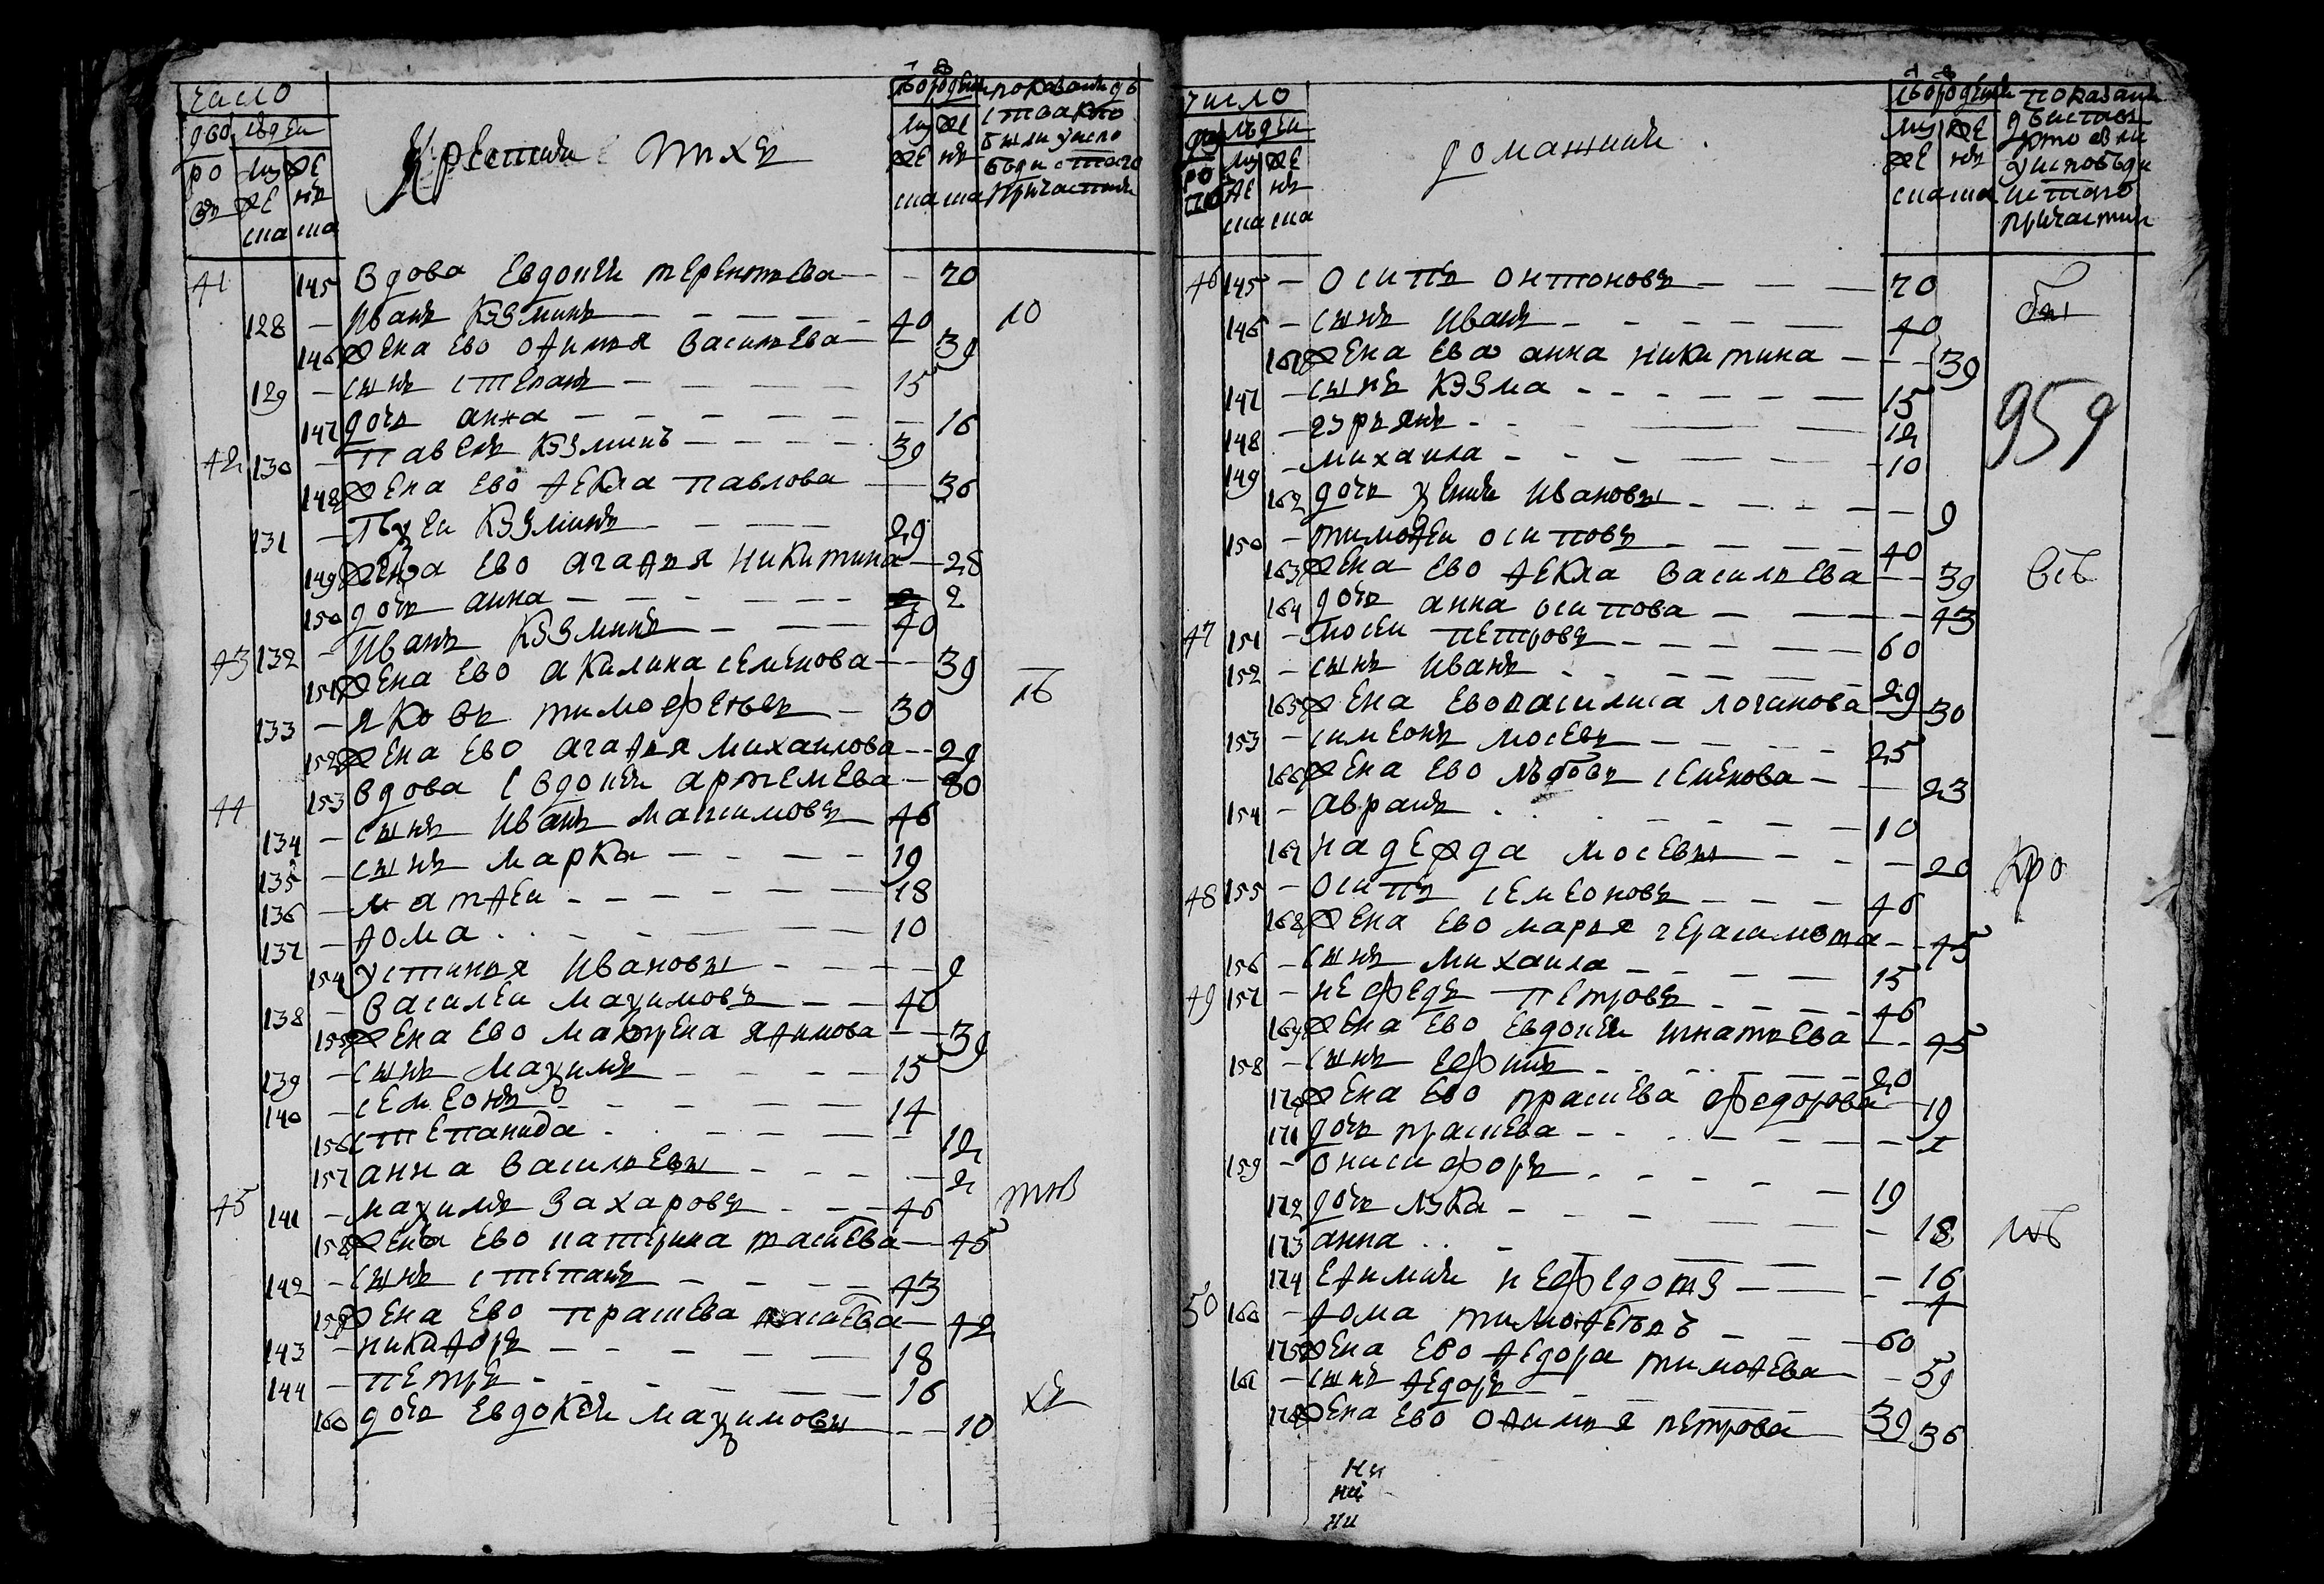 число
дво людеи
ро муж же
въ же нъ
ска ска
Крестиян ихъ
от рождения
муж же
же нъ
ска ска
показание дѣ
ства кто
были у испо
веди с таго
причастия
41 145 вдова Евдокеи терентева 70
128 Иванъ Кузминъ 40 10
146 жена ево офимья василева 39
129 сынъ степанъ 15
147 дочь анна 16
42 130 павелъ Кузминъ 39
148 жена ево фекла павлова 36
131 Кузминъ 29
149 жена ево агафья никитина 28
150 дочь анна 2
43 132 Иванъ Кузминъ 40
151 жена ево акилина семенова 39
133 яковъ тимофеевъ 30
152 жена ево агафья михаилова 29
44 153 вдова Евдокеи артемева 80
134 сынъ Иванъ максимовъ 46
135 сынъ марка 19
136 матфеи 18
137 фома 10
154 устинья Ивановы 9
138 василеи махимовъ 40
155 жена ево матрена якимова 39
139 сынъ махимъ 15
140 семеонъ 14
156 степанида 12
157 анна василевы 2
45 141 махимъ захаровъ 46
158 жена ево катерина 45
142 сынъ степанъ 43
159 жена ево прасковя 42
143 никифоръ 18
144 петръ 16
160 дочь Евдокеи махимовы 10
число
людеи
муж же
же нъ
ска ска
домашния
от рождения
муж же
же нъ
ска ска
показание
кто были
у исповеди
и таго
причастия
46 145 осипъ онтоновъ 70
146 сынъ Иванъ 40
161 жена ево анна никитина 39
147 сынъ Кузма 15
959
148 гурьянъ 12
149 михаила 10
162 дочь Ивановы 9
150 тимофеи осиповъ 40
163 жена ево фекла василева 39
164 дочь анна осипова 43
47 151 мосеи петровъ 60
152 сынъ Иванъ 29
165 жена ево василиса логинова 30
153 симеонъ мосевъ 25
166 жена ево любовь семенова 23
154 аврамъ 10
167 надежда мосевы 20
48 155 осипъ семеоновъ 46
168 жена ево марья герасимова 45
156 сынъ михаила 15
49 157 нефедъ петровъ 46
169 жена ево Евдокеи игнатьева 45
158 сынъ Ефимъ 20
170 жена ево прасковя федорова 19
171 дочь прасковя 1
159 онисифоръ 19
172 дочь лука 18
173 анна 16
174 Ефимия нефедовы 4
50 160 фома тимофеевъ 60
175 жена ево федора тимофева 59
161 сынъ федоръ 39
176 жена ево офимья петрова 36
ни
ни
ни